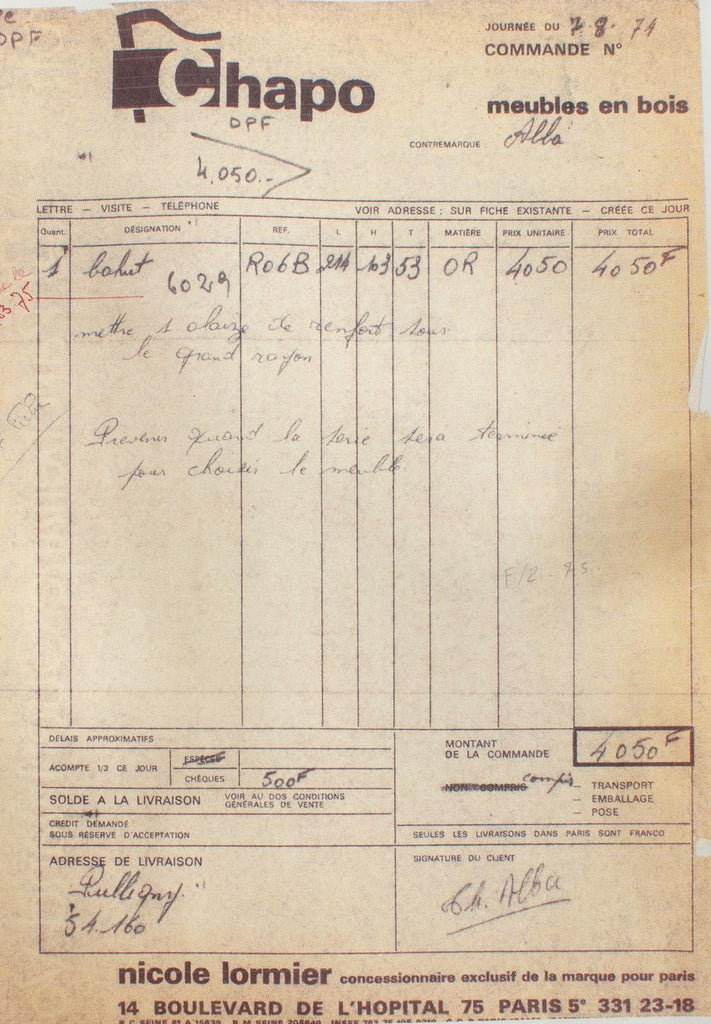 DPF
JOURNÉE DU 7-8-74
COMMANDE N°
Chapo
meubles en bois
DPF
CONTREMARQUE : Alba
4.050.-
LETTRE – VISITE – TÉLÉPHONE
VOIR ADRESSE : SUR FICHE EXISTANTE – CRÉÉE CE JOUR
Quant. DÉSIGNATION REF. L H T MATIÈRE PRIX UNITAIRE PRIX TOTAL
1 bahut 6029 R06B 214 103 53 OR 4050 4050F
75
mettre 1 alaize de renfort sous
le grand rayon
Prevenir quand la serie sera terminée
pour choisir le meuble.
DÉLAIS APPROXIMATIFS
MONTANT
DE LA COMMANDE 4050F
ACOMPTE 1/3 CE JOUR
ESPÈCES
CHÈQUES 500F
NON COMPRIS compris – TRANSPORT
– EMBALLAGE
– POSE
SOLDE A LA LIVRAISON VOIR AU DOS CONDITIONS
GÉNÉRALES DE VENTE
CREDIT DEMANDÉ
SOUS RÉSERVE D'ACCEPTATION
SEULES LES LIVRAISONS DANS PARIS SONT FRANCO
ADRESSE DE LIVRAISON
Pulligny
54.160
SIGNATURE DU CLIENT
Ch. Alba
nicole lormier concessionnaire exclusif de la marque pour paris
14 BOULEVARD DE L'HOPITAL 75 PARIS 5e 331 23-18